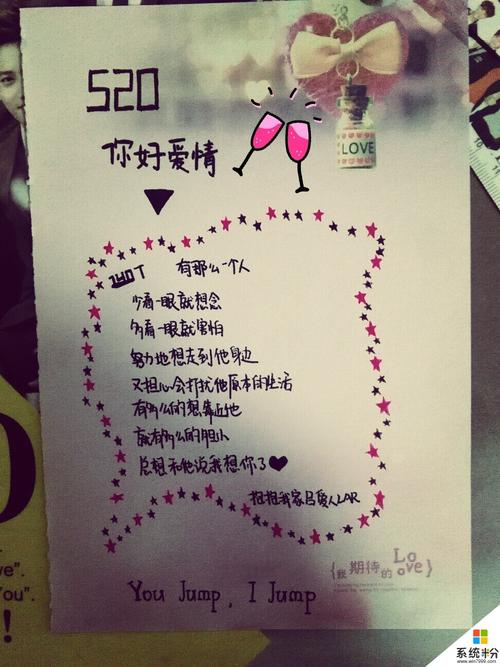 520
LOVE
你好爱情
有那么一个人
少看一眼就想念
多看一眼就害怕
努力地想走到他身边
又担心会打扰他原本的生活
有多么的想靠近他
就有多么的胆小
总想和他说我想你了
抱抱我家
{我期待的Love}
You Jump, I Jump
ve".
You".
!
系统粉
www.win7999.com